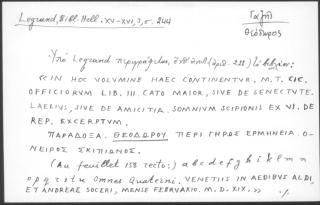 Legrand, Bibl. Hell. XV-XVI, 3, σ. 244
Γαζῆ
Θεόδωρος
Ὑπὸ Legrand περιγράφεται,
« IN HOC VOLVMINE HAEC CONTINENTVR. M. T. CIC.
OFFICIORVM LIB. III. CATO MAIOR, SIVE DE SENECTVTE.
LAELIVS, SIVE DE AMICITIA. SOMNIVM SCIPIONIS EX VI. DE
REP. EXCERPTVM.
ΠΑΡΑΔΟΞΑ. ΘΕΟΔΩΡΟΥ ΠΕΡΙ ΓΗΡΩΣ ΕΡΜΗΝΕΙΑ. Ο-
ΝΕΙΡΟΣ ΣΚΙΠΙΩΝΟΣ.
(Au feuillet 158 recto:) a b c d e f g h i k l m n
o p q r s t u Omnes Quaterni. VENETIIS IN AEDIBVS ALDI,
ET ANDREAE SOCERI, MENSE FEBRVARIO. M. D. XIX. » ./.